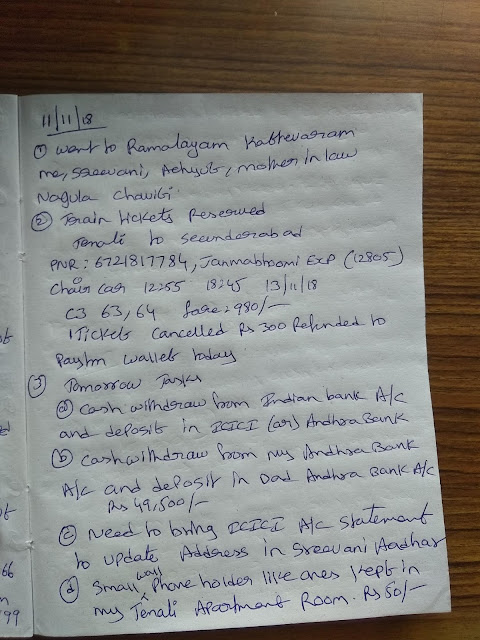 11/11/18
① went to Ramalayam Kathevaram
me, Sreevani, Achyut, mother in law
Nagula Chaviti.
② Train tickets Reserved
Tenali to Secunderabad
PNR: 6721817784, Janmabhoomi Exp (12805)
Chair car 12:55 18:45 13/11/18
C3 63, 64 fare: 980/-
1 Ticket cancelled Rs 300 Refunded to
Paytm wallet today
③ Tomorrow Tasks
ⓐ cash withdraw from Indian bank A/c
and deposit in ICICI (or) Andhra Bank
ⓑ cash withdraw from my Andhra Bank
A/c and deposit in Dad Andhra Bank A/c
Rs 49,500/-
ⓒ Need to bring ICICI A/c Statement
to update Address in Sreevani Aadhar
ⓓ Small wall Phone holder like ones kept in
my Tenali Apartment Room. Rs 50/-
66
99